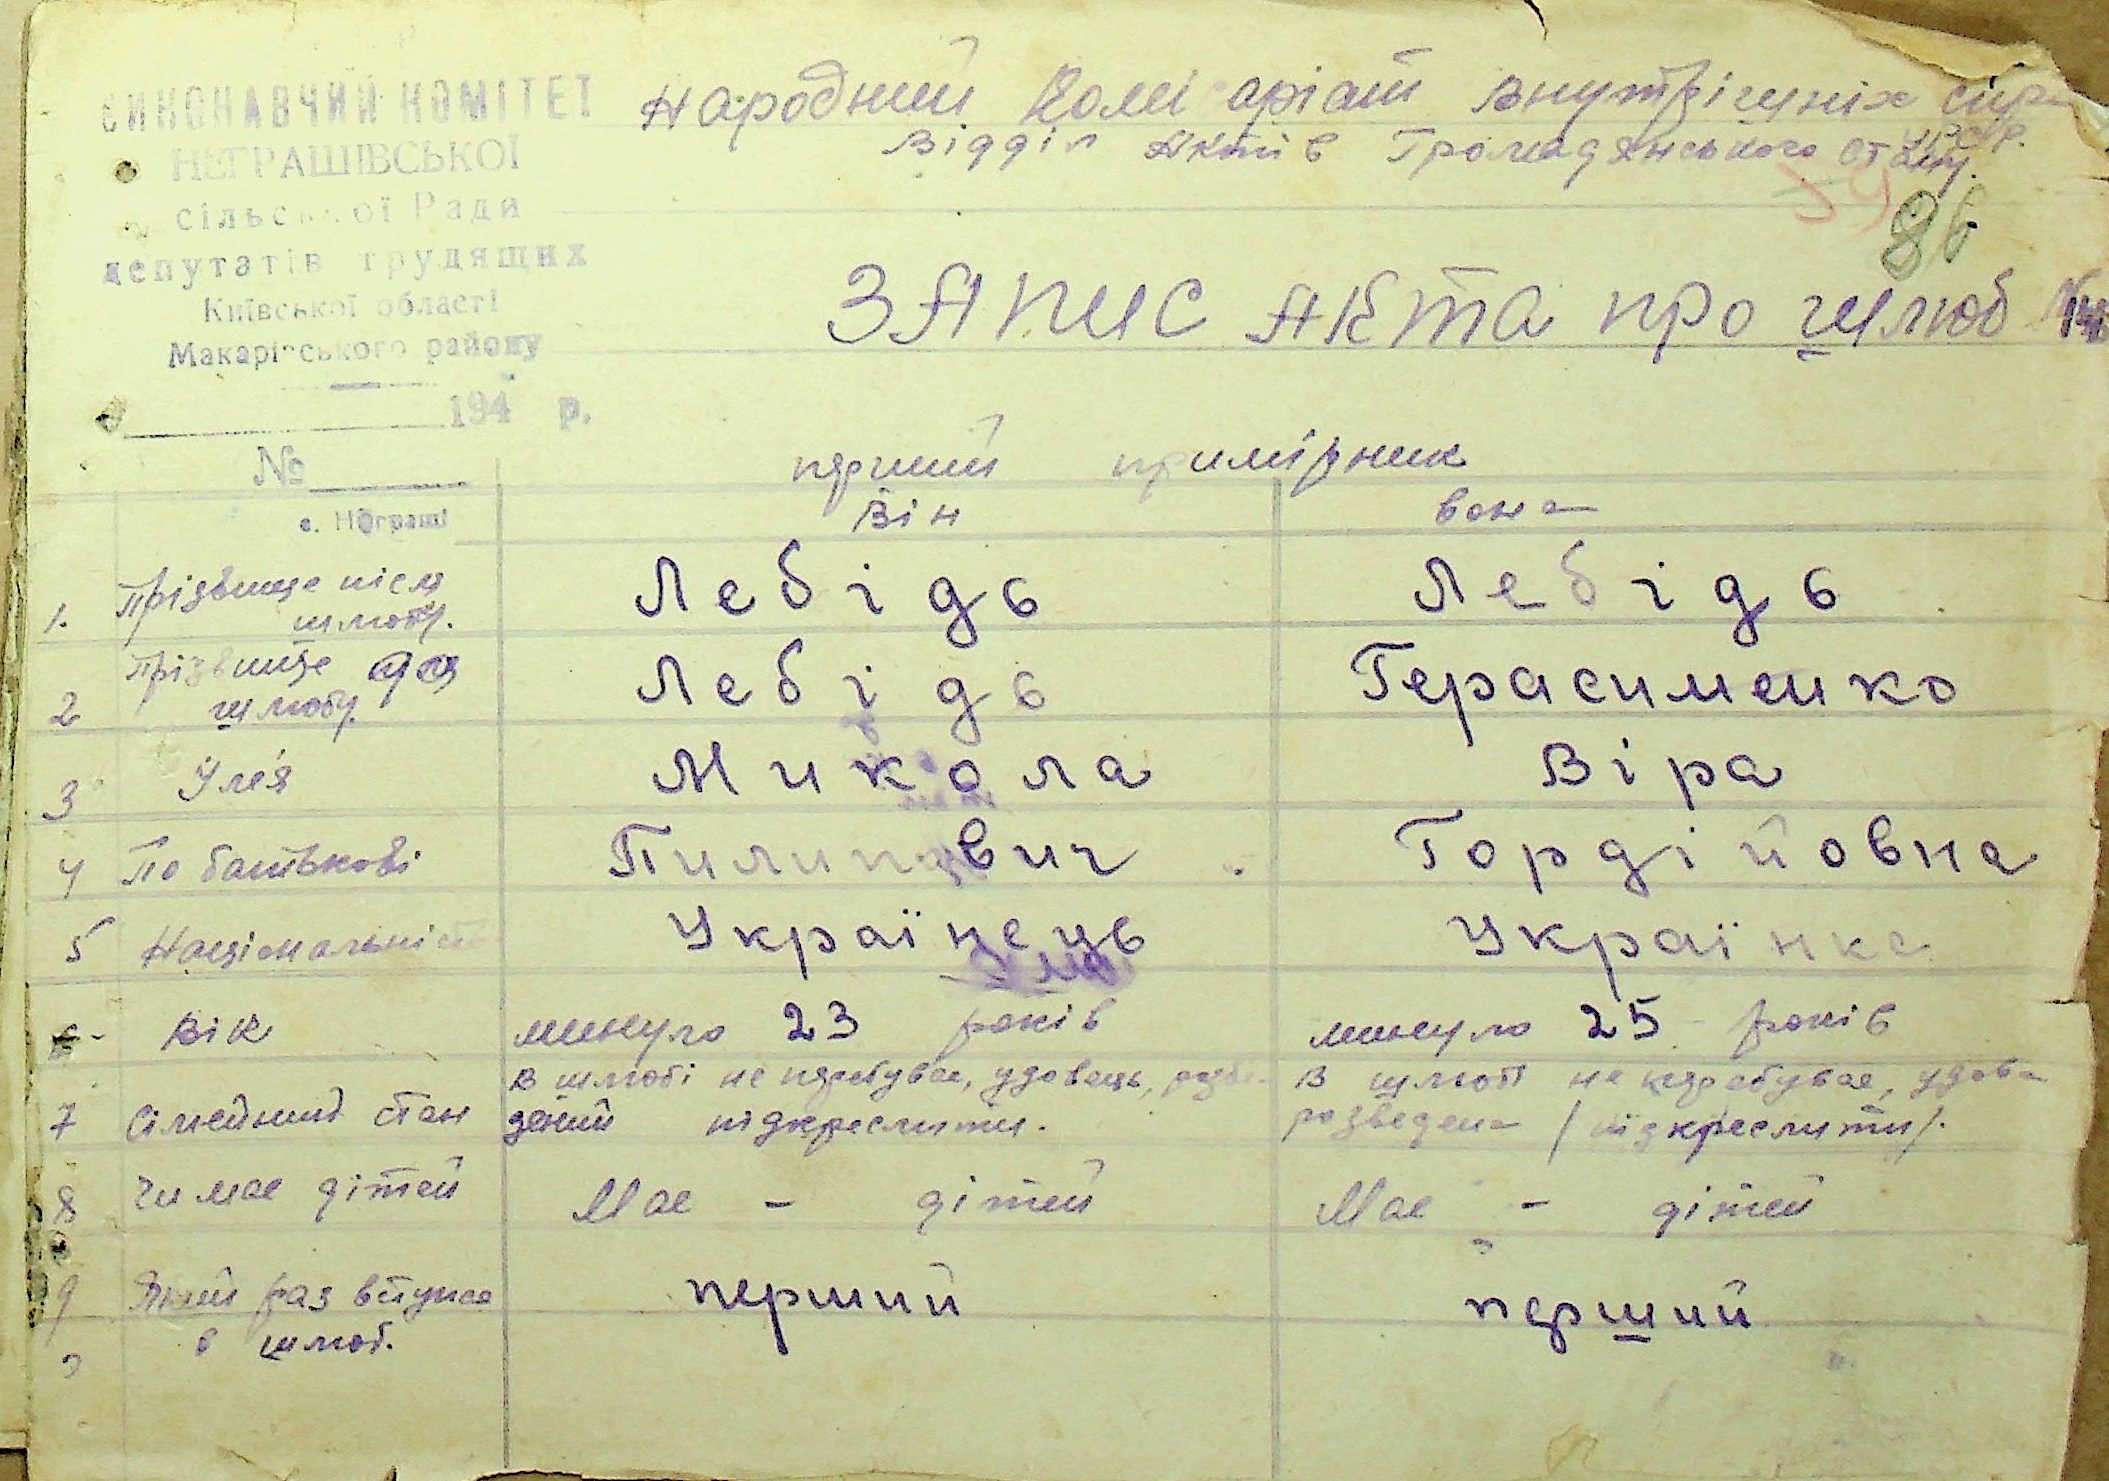 ВИКОНАВЧИЙ КОМІТЕТ
НЕГРАШІВСЬКОЇ
сільської Ради
депутатів трудящих
Київської області
Макарівського району
194 р.
№
с. Неграші
Народний Комісаріат Внутрішніх справ
УРСР.
Відділ Актів Громадянського стану.
86
ЗАПИС АКТА про шлюб №
перший примірник
Він Вона
1. Прізвище після шлюбу. Лебідь Лебідь
2 Прізвище до шлюбу. Лебідь Герасименко
3 Ім'я Микола Віра
4 По батькові Пилипович Гордійовна
5 Національність Українець Українка
6 Вік минуло 23 років минуло 25 років
7 Сімейний стан В шлюбі не перебуває, удовець, розведений підкреслити. В шлюбі не перебуває, удова розведена /підкреслити/.
8 Чи має дітей Має - дітей Має - дітей
9 Який раз вступає в шлюб. перший перший